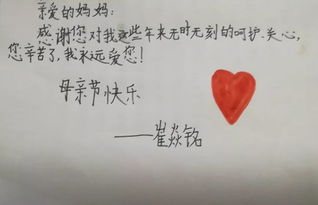 亲爱的妈妈：
感谢您对我这些年来无时无刻的呵护、关心，
您辛苦了，我永远爱您！
母亲节快乐
——崔焱铭